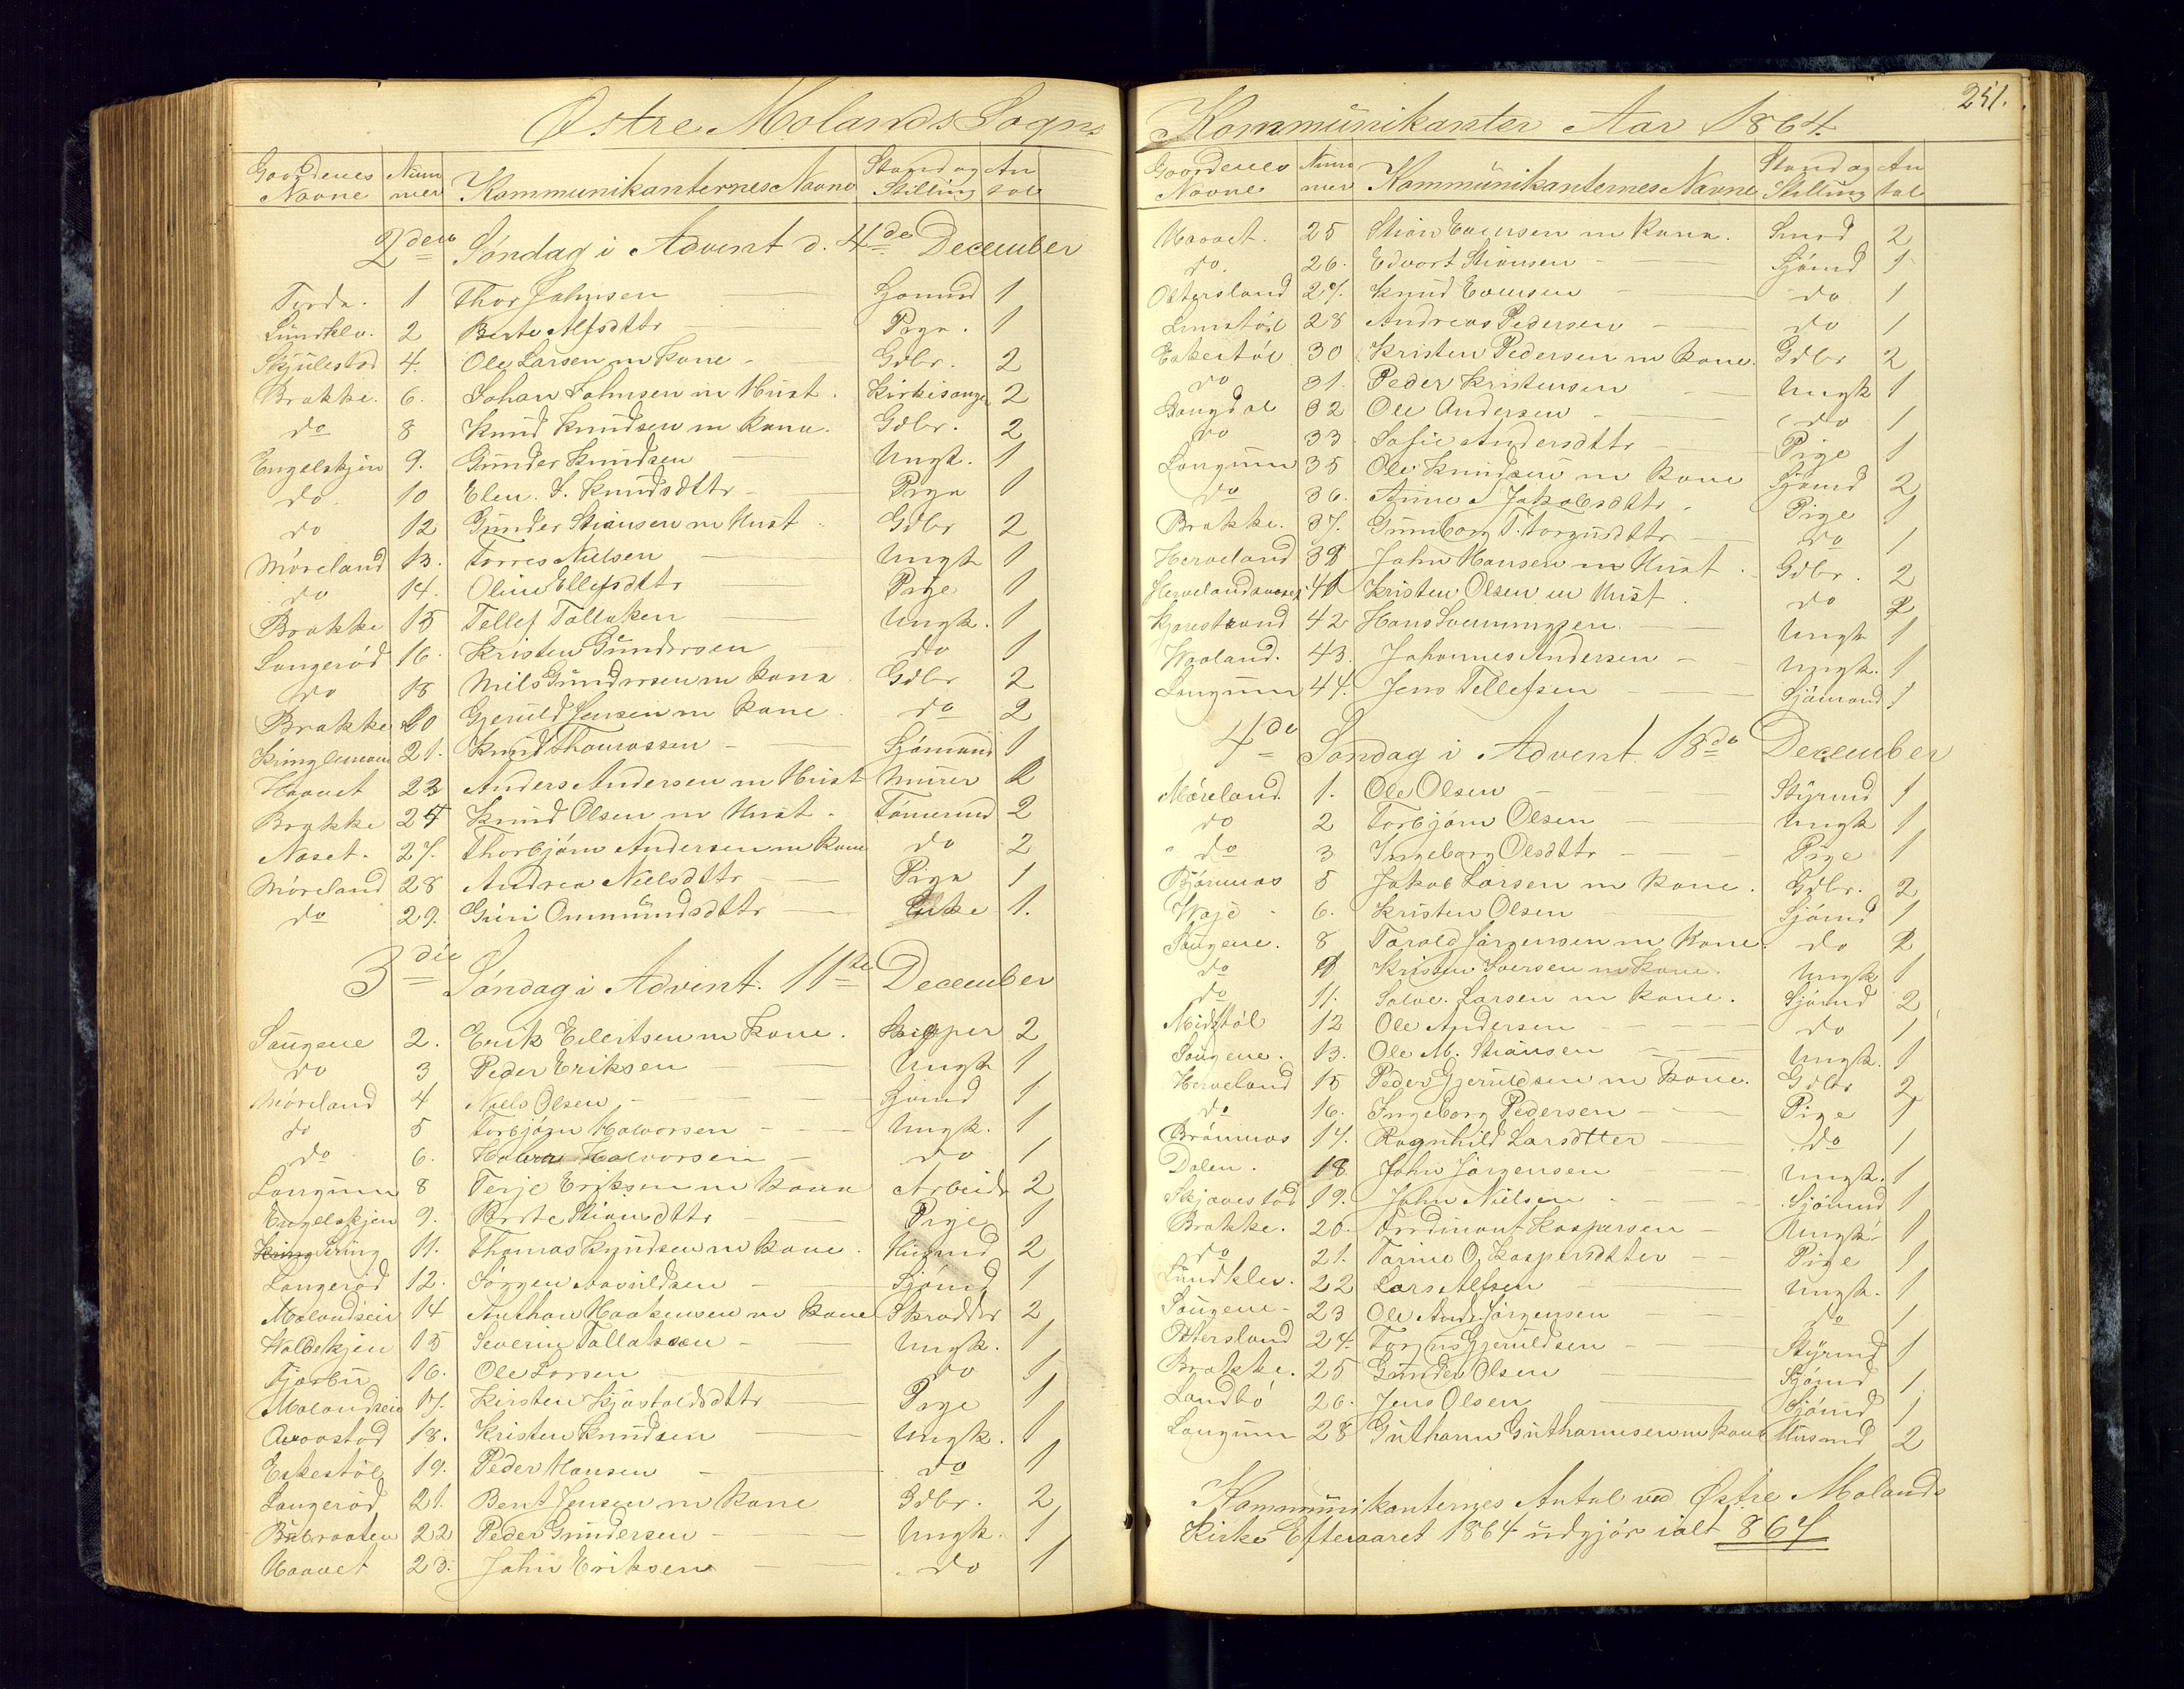 Østre Molands Sogns
Gaardenes Navne Num mer Kommunikanternes Navne Stand og Stilling An tal
2den Søndag i Advent d. 4de December
1 Thor Johnsen Sjømnd 1
Lundklev. 2 Berte Alfsdttr Pige. 1
Skjulestad 4. Ole Larsen m Kone - Gdbr. 2
Brække. 6. Johan Johnsen m Hust. Kirkesanger 2
do 8 Knud Knudsen m Kone. Gdbr. 2
Engelskjen 9. Gunder Knudsen Ungk. 1
do 10 Elen. S. Knudsdttr Pige 1
do 12 Gunder Stiansen m Hust Gdbr 2
Møreland 13. Torres Nielsen Ungk 1
do 14. Oline Ellefsdttr Pige 1
Brække 15 Tellef Tallaksen Ungk. 1
Langerød 16. Kristen Gundersen do 1
do 18 Niels Gundersen m Kone Gdbr 2
Brække 20 Gjeruld Jensen m Kone do 2
21. Knud Thomassen Sjømand 1
Haavet 23 Anders Andersen m Hust Murer 2
Brække 25 Knud Olsen m Hust. Tømmrmd 2
Naset. 27. Thorbjørn Andersen m Kone do 2
Møreland 28 Andrea Nielsdttr Pige 1
do 29. Guri Ommundsdttr Enke 1.
3die Søndag i Advent. 11te December
Saugene 2. Erik Eilertsen m Kone. Skipper 2
do 3 Peder Eriksen Ungk 1
Møreland 4 Niels Olsen Sjømd 1
do 5 Torbjørn Halvorsen Ungk. 1
do 6. Halvor Halvorsen do 1
Langum 8 Terje Eriksen m Kone Arbeidr 2
Engelskjen 9. Berte Stiansdttr Pige 1
Sering 11. Thomas Knudsen m Kone. Husmd 2
Langerød 12. Jørgen Aavuldsen Sjømd 1
Molandseie 14 Anthon Haakensen m Kone Skrædder 2
Holdekjen 15 Severin Tallaksen Ungk. 1
Tjærbu 16. Ole Larsen do 1
Molandseie 17. Kirsten Kjøstolvsdttr Pige 1
18. Kristen Knudsen Ungk. 1
Eskestøl 19. Peder Hansen do 1
Langerød 21. Bent Jensen m Kone Gdbr. 2
Bubraaten 22 Peder Gundersen Ungk. 1
Haavet 23. John Eriksen do 1
251.
Kommunikanter Aar 1864.
Gaardenes Navne Num mer Kommunikanternes Navne Stand og Stilling An tal
Haavet. 25 Stian Evensen m Kone. Smed 2
do. 26. Edvart Stiansen Sjømd 1
Ottersland 27. Knud Evensen do 1
Lunstøl 28 Andreas Pedersen do 1
Eskestøl 30 Kristen Pedersen m Kone. Gdbr 2
do 31. Peder Kristensen Ungk 1
Bangdal 32 Ole Andersen do 1
do 33 Sofie Andersdttr Pige 1
Langum 35 Ole Knudsen m Kone Sjømd 2
do 36. Anne S Jakobsdttr Pige 1
Brække. 37. Gunborg T. Torgusdttr do 1
Herveland 39 John Hansen m Hust. Gdbr. 2
41 Kristen Olsen m Hust. do 2
Kjørestrand 42 Hans Svenningsen. Ungk 1
Waaland. 43. Johannes Andersen Ungk. 1
Langum 44. Jens Tellefsen Sjømand 1
4de Søndag i Advent. 18de December
Møreland. 1. Ole Olsen Styrmd 1
do 2 Torbjørn Olsen Ungk 1
do 3 Ingeborg Olsdttr Pige 1
Bjønnæs 5 Jakob Larsen m Kone. Gdbr. 2
Waje 6. Kristen Olsen Sjømd 1
Saugene. 8 Tarald Jørgensen m Kone. do 2
do 9 Kristen Iversen m Kone. Ungk 1
do 11. Salve. Larsen m Kone. Sjømd 2
Midtstøl 12 Ole Andersen do 1
Saugene. 13. Ole M. Stiansen Ungk. 1
Herveland 15 Peder Gjeruldsen m Kone. Gdbr 2
do 16. Ingeborg Pedersen Pige 1
Brønnæs 17. Ragnhild Larsdtter do 1
Dalen. 18 John Jørgensen Ungk. 1
Skjævestad 19. John Nielsen Sjømnd 1
Brække. 20. Ferdinant Kaspersen Ungk. 1
do 21. Tarine O. Kaspersdtter Pige 1
Lundklev. 22 Lars Alfsen Ungk. 1
Saugene 23 Ole Andr. Jørgensen do 1
Ottersland 24. Torjus Gjeruldsen Styrmd 1
Brække. 25 Gunder Olsen Sjømd 1
Landbø 26. Jens Olsen Sjømd 1
Langum 28 Guthorm Guthormsen m Kone Husmd 2
Kommunikanternes Antal ved Østre Molands
Kirke Efteraaret 1864 udgjør ialt 867